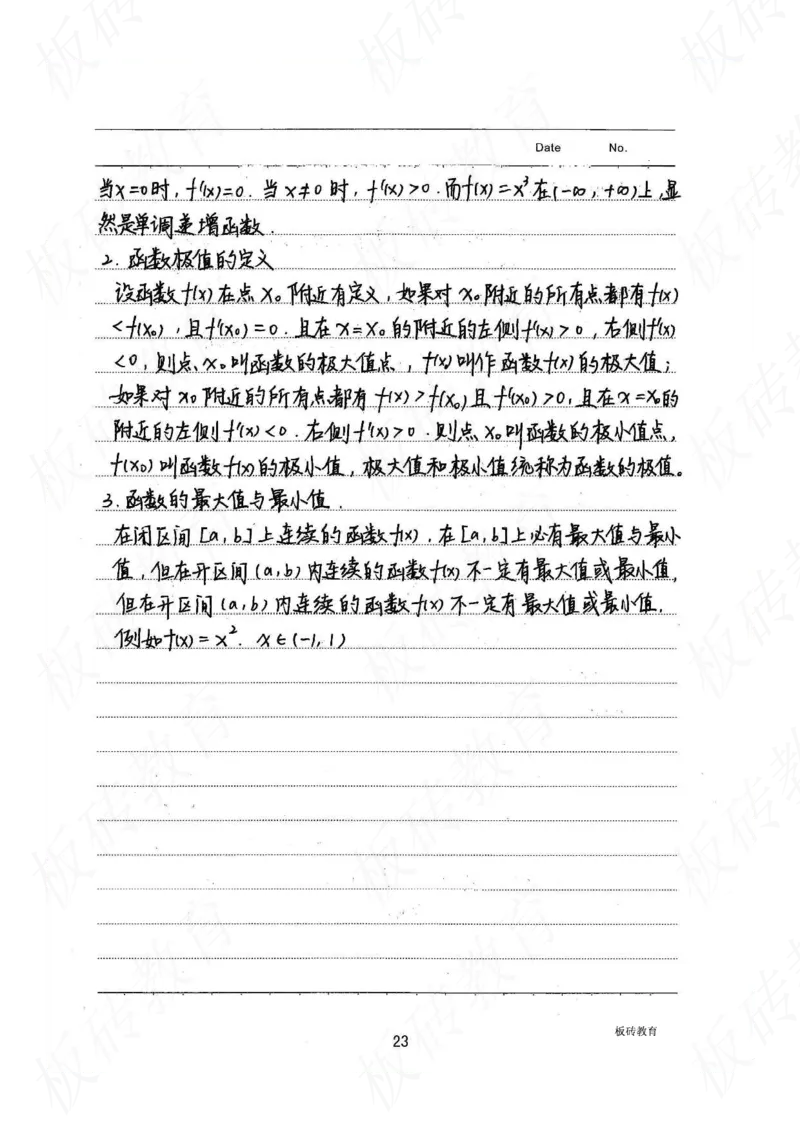 Date No.
当x=0时,f'(x)=0.当x≠0时,f'(x)>0.而f(x)=x³在(-∞,+∞)上,显
然是单调递增函数.
2.函数极值的定义
设函数f(x)在点x₀附近有定义,如果对x₀附近的所有点都有f(x)
<f(x₀),且f'(x₀)=0.且在x=x₀的附近的左侧f'(x)>0,右侧f'(x)
<0,则点x₀叫函数的极大值点,f(x)叫作函数f(x)的极大值;
如果对x₀附近的所有点都有f(x)>f(x₀)且f'(x₀)>0,且在x=x₀的
附近的左侧f'(x)<0.右侧f'(x)>0.则点x₀叫函数的极小值点,
f(x₀)叫函数f(x)的极小值,极大值和极小值统称为函数的极值。
3.函数的最大值与最小值.
在闭区间[a,b]上连续的函数f(x),在[a,b]上必有最大值与最小
值,但在开区间(a,b)内连续的函数f(x)不一定有最大值或最小值,
但在开区间(a,b)内连续的函数f(x)不一定有最大值或最小值,
例如f(x)=x². x∈(-1,1)
板砖教育
23